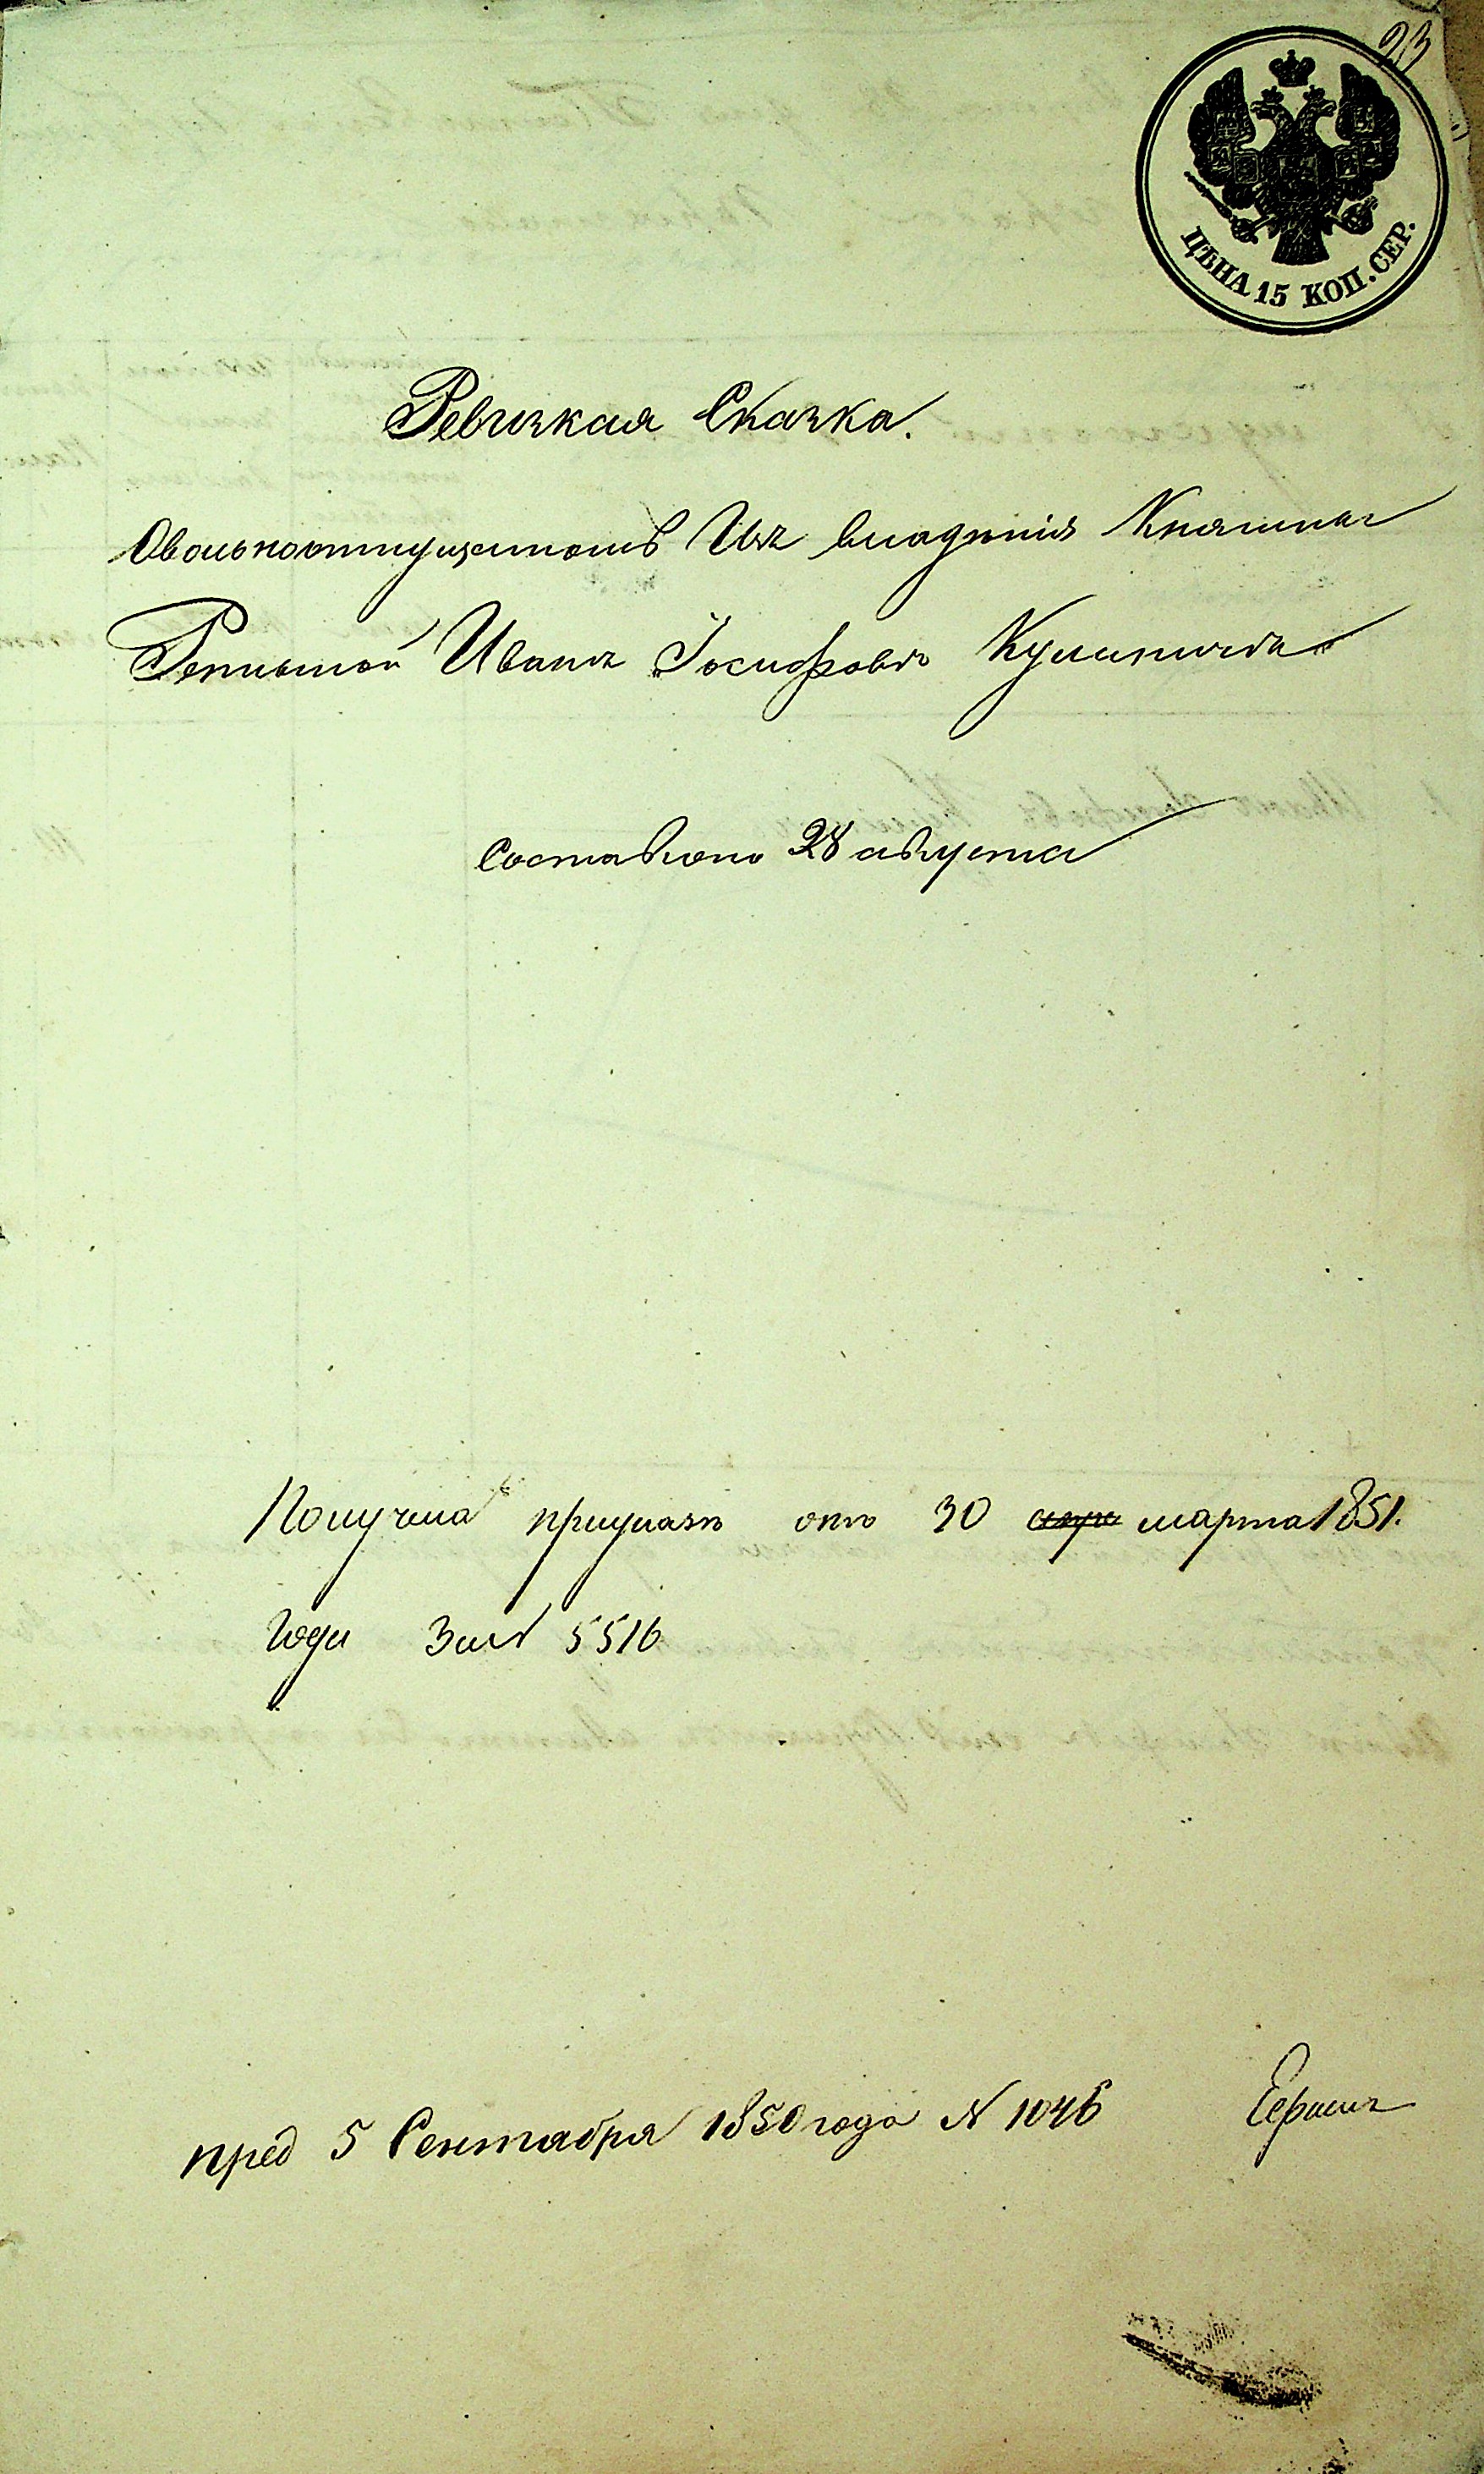 23
ЦѢНА 15 КОП. СЕР.
Ревизкая Сказка.
Овольноотпущенномъ Изъ владѣнія Княгини
Репниной Иванъ Іосифовъ
Составлено 28 августа
Получилъ приказъ отъ 30 марта 1851.
Года За № 5516
пред 5 Сентабря 1850 года N 1046